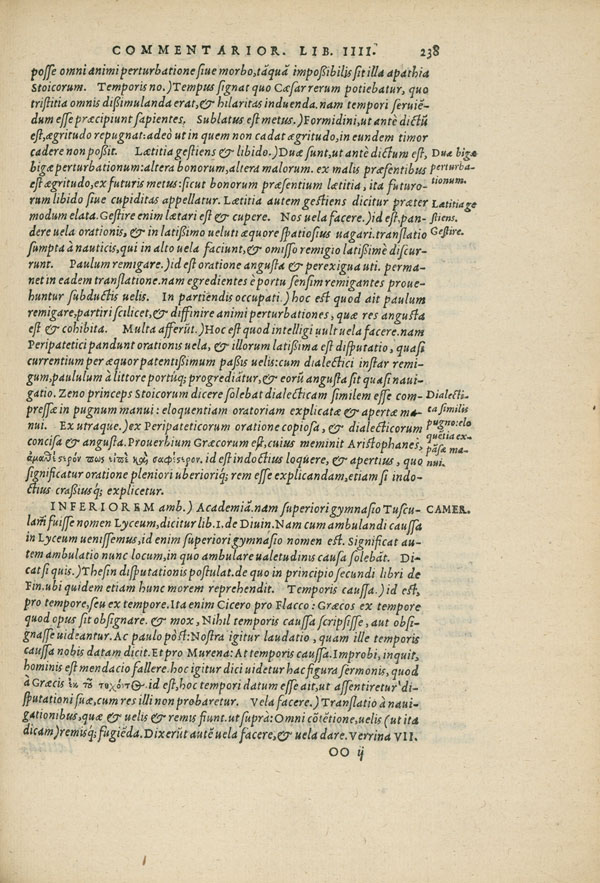 COMMENTARIOR. LIB. IIII. 238
posse omni animi perturbatione siue morbo, tāquā impoßibilis sit illa apathia
Stoicorum. Temporis no.) Tempus signat quo Cæsar rerum potiebatur, quo
tristitia omnis dißimulanda erat, & hilaritas induenda. nam tempori seruiē-
dum esse præcipiunt sapientes. Sublatus est metus.) Formidini, ut antè dictū
est, ægritudo repugnat: adeò ut in quem non cadat ægritudo, in eundem timor
cadere non poßit. Lætitia gestiens & libido.) Duæ sunt, ut antè dictum est,
bigæ perturbationum: altera bonorum, altera malorum. ex malis præsentibus
est ægritudo, ex futuris metus: sicut bonorum præsentium lætitia, ita futuro-
rum libido siue cupiditas appellatur. Lætitia autem gestiens dicitur præter
modum elata. Gestire enim lætari est & cupere. Nos uela facere.) id est, pan-
dere uela orationis, & in latißimo ueluti æquore spatiosius uagari. translatio
sumpta à nauticis, qui in alto uela faciunt, & omisso remigio latißimè discur-
runt. Paulum remigare.) id est oratione angusta & perexigua uti. perma-
net in eadem translatione. nam egredientes è portu sensim remigantes proue-
huntur subductis uelis. In partiendis occupati.) hoc est quod ait paulum
remigare, partiri scilicet, & diffinire animi perturbationes, quæ res angusta
est & cohibita. Multa afferūt.) Hoc est quod intelligi uult uela facere. nam
Peripatetici pandunt orationis uela, & illorum latißima est disputatio, quasi
currentium per æquor patentißimum paßis uelis: cum dialectici instar remi-
gum, paululum à littore portuq; progrediātur, & eorū angusta sit quasi naui-
gatio. Zeno princeps Stoicorum dicere solebat dialecticam similem esse com-
pressæ in pugnum manui: eloquentiam oratoriam explicatæ & apertæ ma-
nui. Ex utraque.) ex Peripateticorum oratione copiosa, & dialecticorum
concisa & angusta. Prouerbium Græcorum est, cuius meminit Aristophanes,
ἀμαθέστερόν πως εἰπὲ καὶ σαφέστερον. id est indoctius loquere, & apertius, quo
significatur oratione pleniori uberioriq; rem esse explicandam, etiam si indo-
ctius craßiusq; explicetur.
INFERIOREM amb.) Academiā. nam superiori gymnasio Tuscu-
lam fuisse nomen Lyceum, dicitur lib. 1. de Diuin. Nam cum ambulandi caussa
in Lyceum uenissemus, id enim superiori gymnasio nomen est. Significat au-
tem ambulatio nunc locum, in quo ambulare ualetudinis causa solebāt. Di-
cat si quis.) Thesin disputationis postulat. de quo in principio secundi libri de
Fin. ubi quidem etiam hunc morem reprehendit. Temporis caussa.) id est,
pro tempore, seu ex tempore. Ita enim Cicero pro Flacco: Græcos ex tempore
quod opus sit obsignare. & mox, Nihil temporis caussa scripsisse, aut obsi-
gnasse uideantur. Ac paulo pòst: Nostra igitur laudatio, quam ille temporis
caussa nobis datam dicit. Et pro Murena: At temporis caussa. Improbi, inquit,
hominis est mendacio fallere. hoc igitur dici uidetur hac figura sermonis, quod
à Græcis ἐκ τοῦ τυχόντος. id est, hoc tempori datum esse ait, ut assentiretur di-
sputationi suæ, cum res illi non probaretur. Vela facere.) Translatio à naui-
gationibus, quæ & uelis & remis fiunt. ut suprà: Omni cōtētione, uelis (ut ita
dicam) remisq; fugiēda. Dixerūt autē uela facere, & uela dare. Verrina VII.
OO ij
Duæ bigæ
perturba-
tionum.
Lætitia ge
stiens.
Gestire.
Dialecti-
ca similis
pugno: elo
quētia ex-
pāsæ ma-
nui.
CAMER.